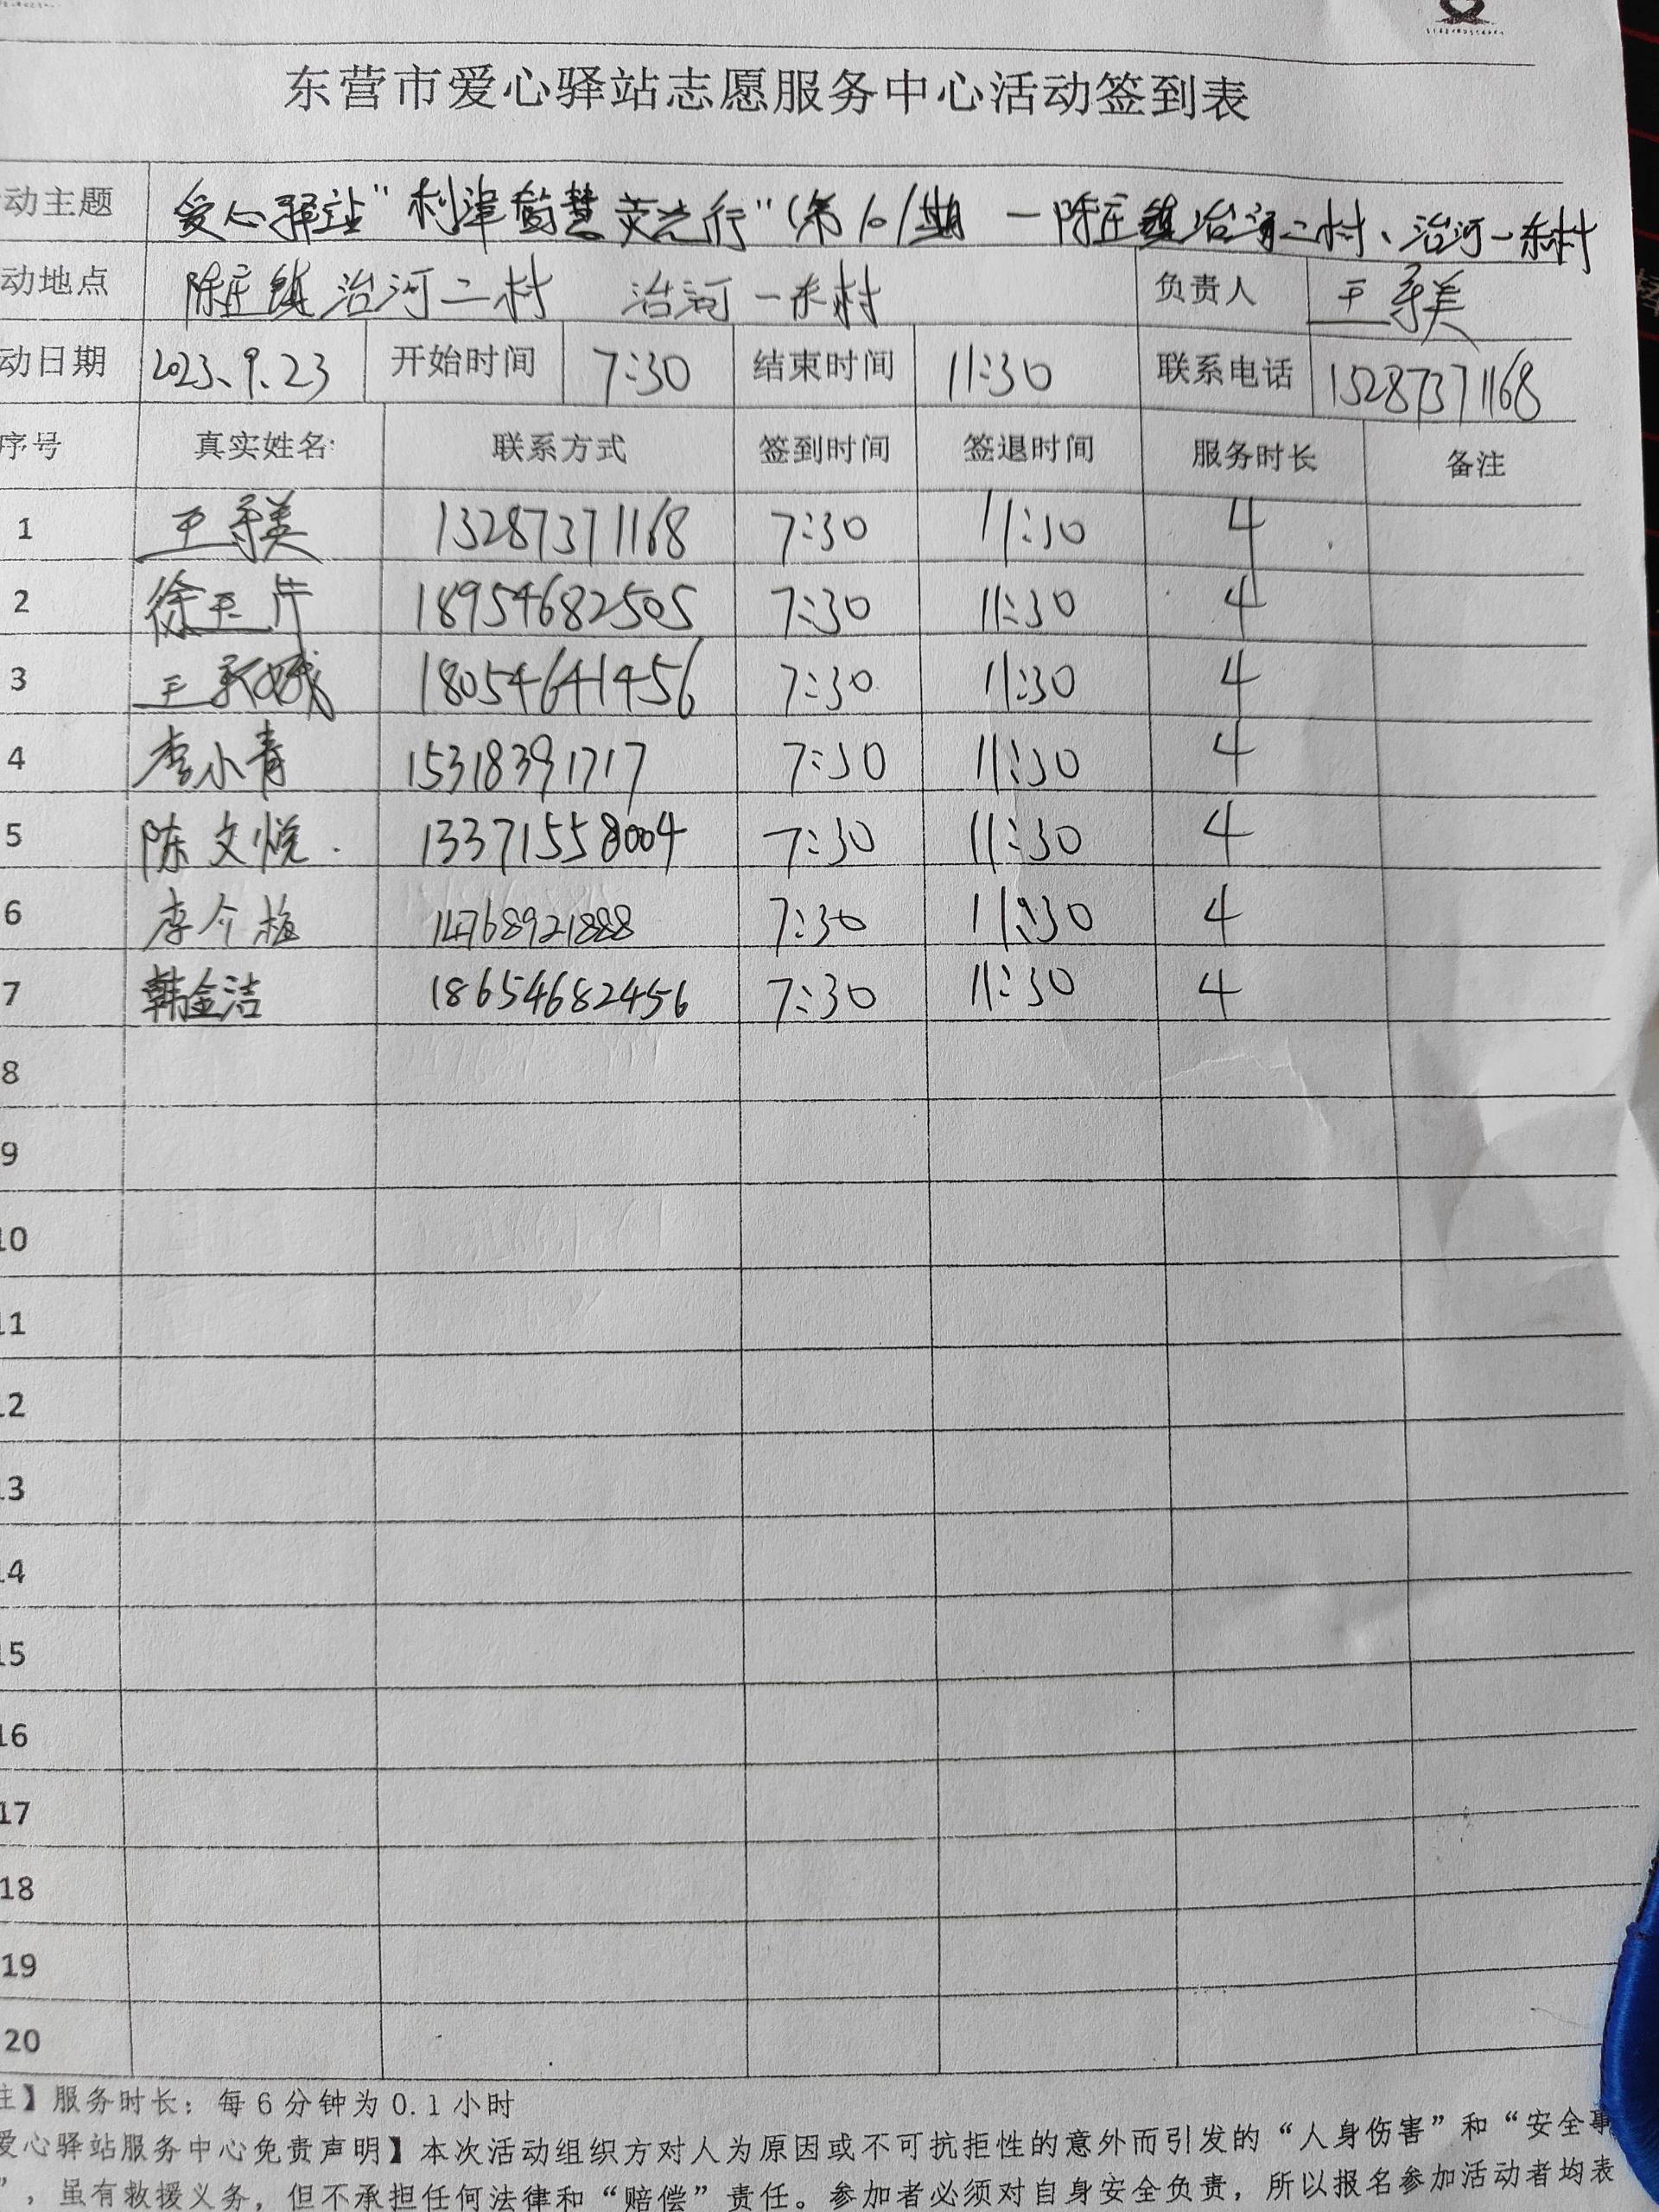 东营市爱心驿站志愿服务中心活动签到表
动主题 爱心驿站"利津 行"(第101期 一陈庄镇治河二村、治河一东村
动地点 陈庄镇治河二村 治河一东村 负责人 王 美
动日期 2023.9.23 开始时间 7:30 结束时间 11:30 联系电话 13287371168
序号 真实姓名 联系方式 签到时间 签退时间 服务时长 备注
1 王 美 13287371168 7:30 11:30 4
2 徐玉 18954682505 7:30 11:30 4
3 王 18054641456 7:30 11:30 4
4 李小青 15318391717 7:30 11:30 4
5 陈文悦 13371558004 7:30 11:30 4
6 李 梅 7:30 11:30 4
7 韩金洁 18654682456 7:30 11:30 4
8
9
10
11
12
13
14
15
16
17
18
19
20
注】服务时长：每6分钟为0.1小时
爱心驿站服务中心免责声明】本次活动组织方对人为原因或不可抗拒性的意外而引发的“人身伤害”和“安全事
”，虽有救援义务，但不承担任何法律和“赔偿”责任。参加者必须对自身安全负责，所以报名参加活动者均表